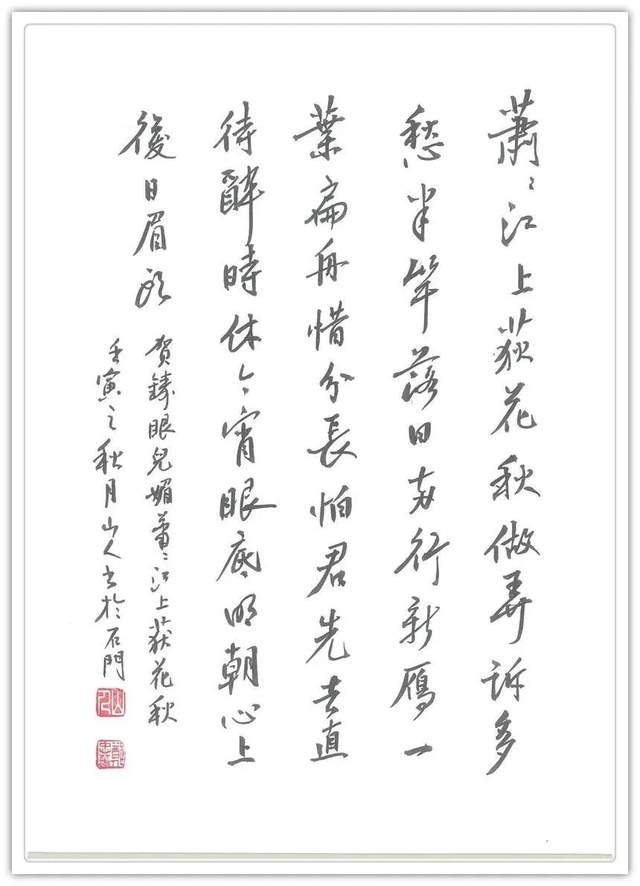 蕭〻江上荻花秋做弄許多
愁半竿落日兩行新鴈一
葉扁舟惜分長怕君先去直
待醉時休今宵眼底明朝心上
後日眉頭
賀鑄眼兒媚蕭〻江上荻花秋
壬寅之秋月山人書於石門
山人